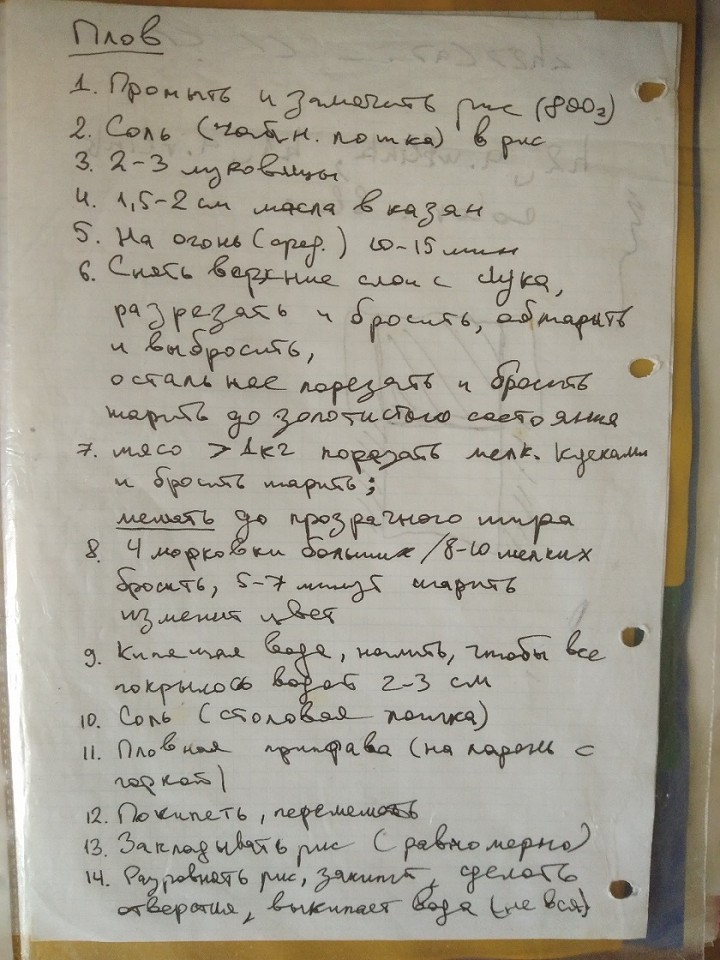 Плов
1. Промыть и замочить рис (800г)
2. Соль (чайн. ложка) в рис
3. 2-3 луковицы
4. 1,5-2 см масла в казан
5. На огонь (сред.) 10-15 мин
6. Снять верхние слои с лука,
разрезать и бросить, обжарить
и выбросить,
остальное порезать и бросить
жарить до золотистого состояния
7. мясо > 1кг порезать мелк. кусками
и бросить жарить;
мешать до прозрачного жира
8. 4 морковки больших / 8-10 мелких
бросить, 5-7 минут жарить
изменит цвет
9. Кипящая вода, налить, чтобы все
покрылось водой 2-3 см
10. Соль (столовая ложка)
11. Пловная приправа (на ладонь с
горкой)
12. Покипеть, перемешать
13. Закладывать рис (равномерно)
14. Разровнять рис, закипит, сделать
отверстия, выкипает вода (не вся)